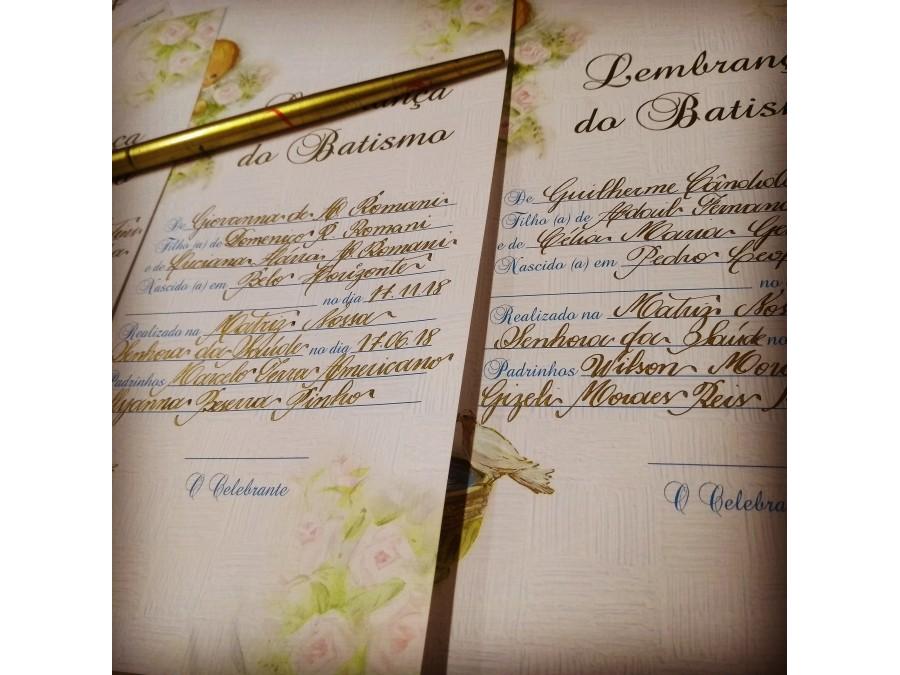 do Batismo
De Giovanna de M. Romani
Filho (a) de Domenico P. Romani
e de Luciana Maria M. Romani
Nascido (a) em Belo Horizonte
no dia 17.11.18
Realizado na Matriz Nossa
Senhora da Saúde no dia 17.06.18
Padrinhos Marcelo Terra Americano
Bezerra Pinho
O Celebrante
Lembranç
do Batis
De Guilherme Cândido
Filho (a) de Adail Fernan
e de Célia Maria
Nascido (a) em Pedro Leop
no
Realizado na Matriz Nos
Senhora da Saúde no
Padrinhos Wilson
Gizeli Moraes Reis
O Celebra